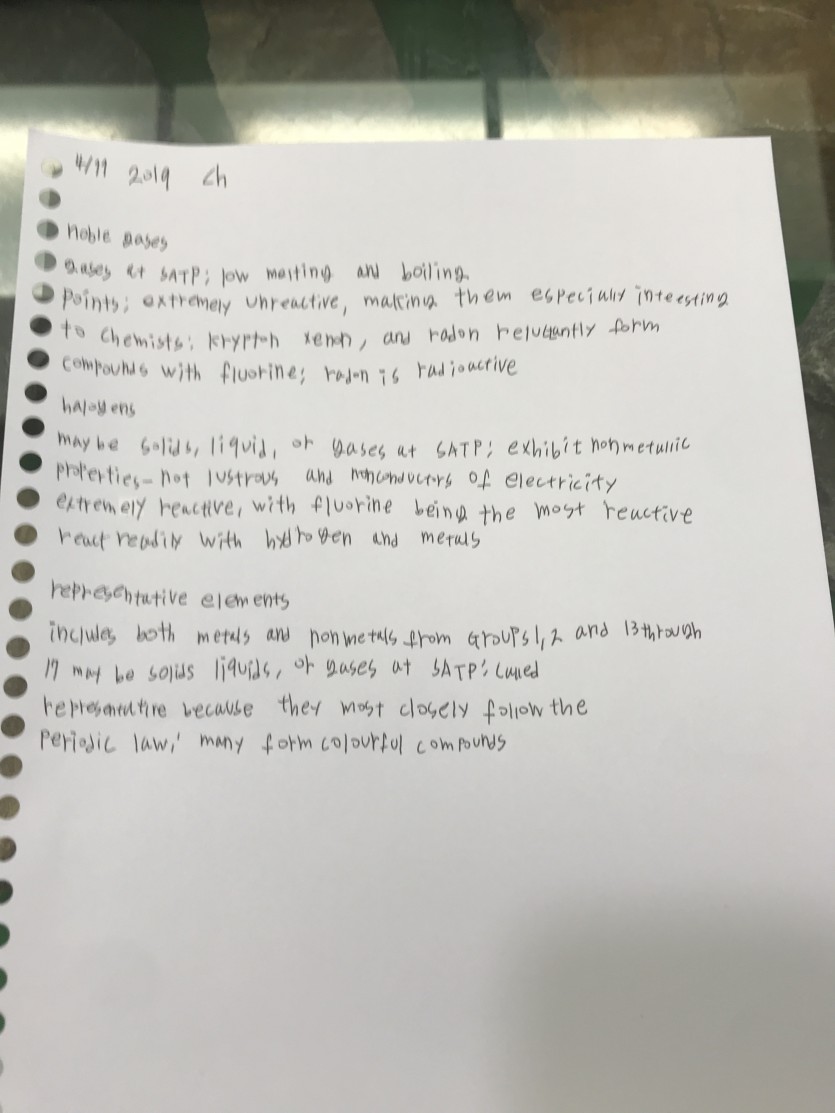 4/11 2019 ch
noble gases
gases at SATP; low melting and boiling
points; extremely unreactive, making them especially inteesting
to chemists; krypton xenon, and radon reluctantly form
compounds with fluorine; radon is radioactive
halogens
maybe solids, liquid, or gases at SATP; exhibit nonmetallic
properties - not lustrous and nonconductors of electricity
extremely reactive, with fluorine being the most reactive
react readily with hydrogen and metals
representative elements
includes both metals and nonmetals from Groups 1, 2 and 13 through
17 may be solids liquids, or gases at SATP; called
representative because they most closely follow the
periodic law; many form colourful compounds